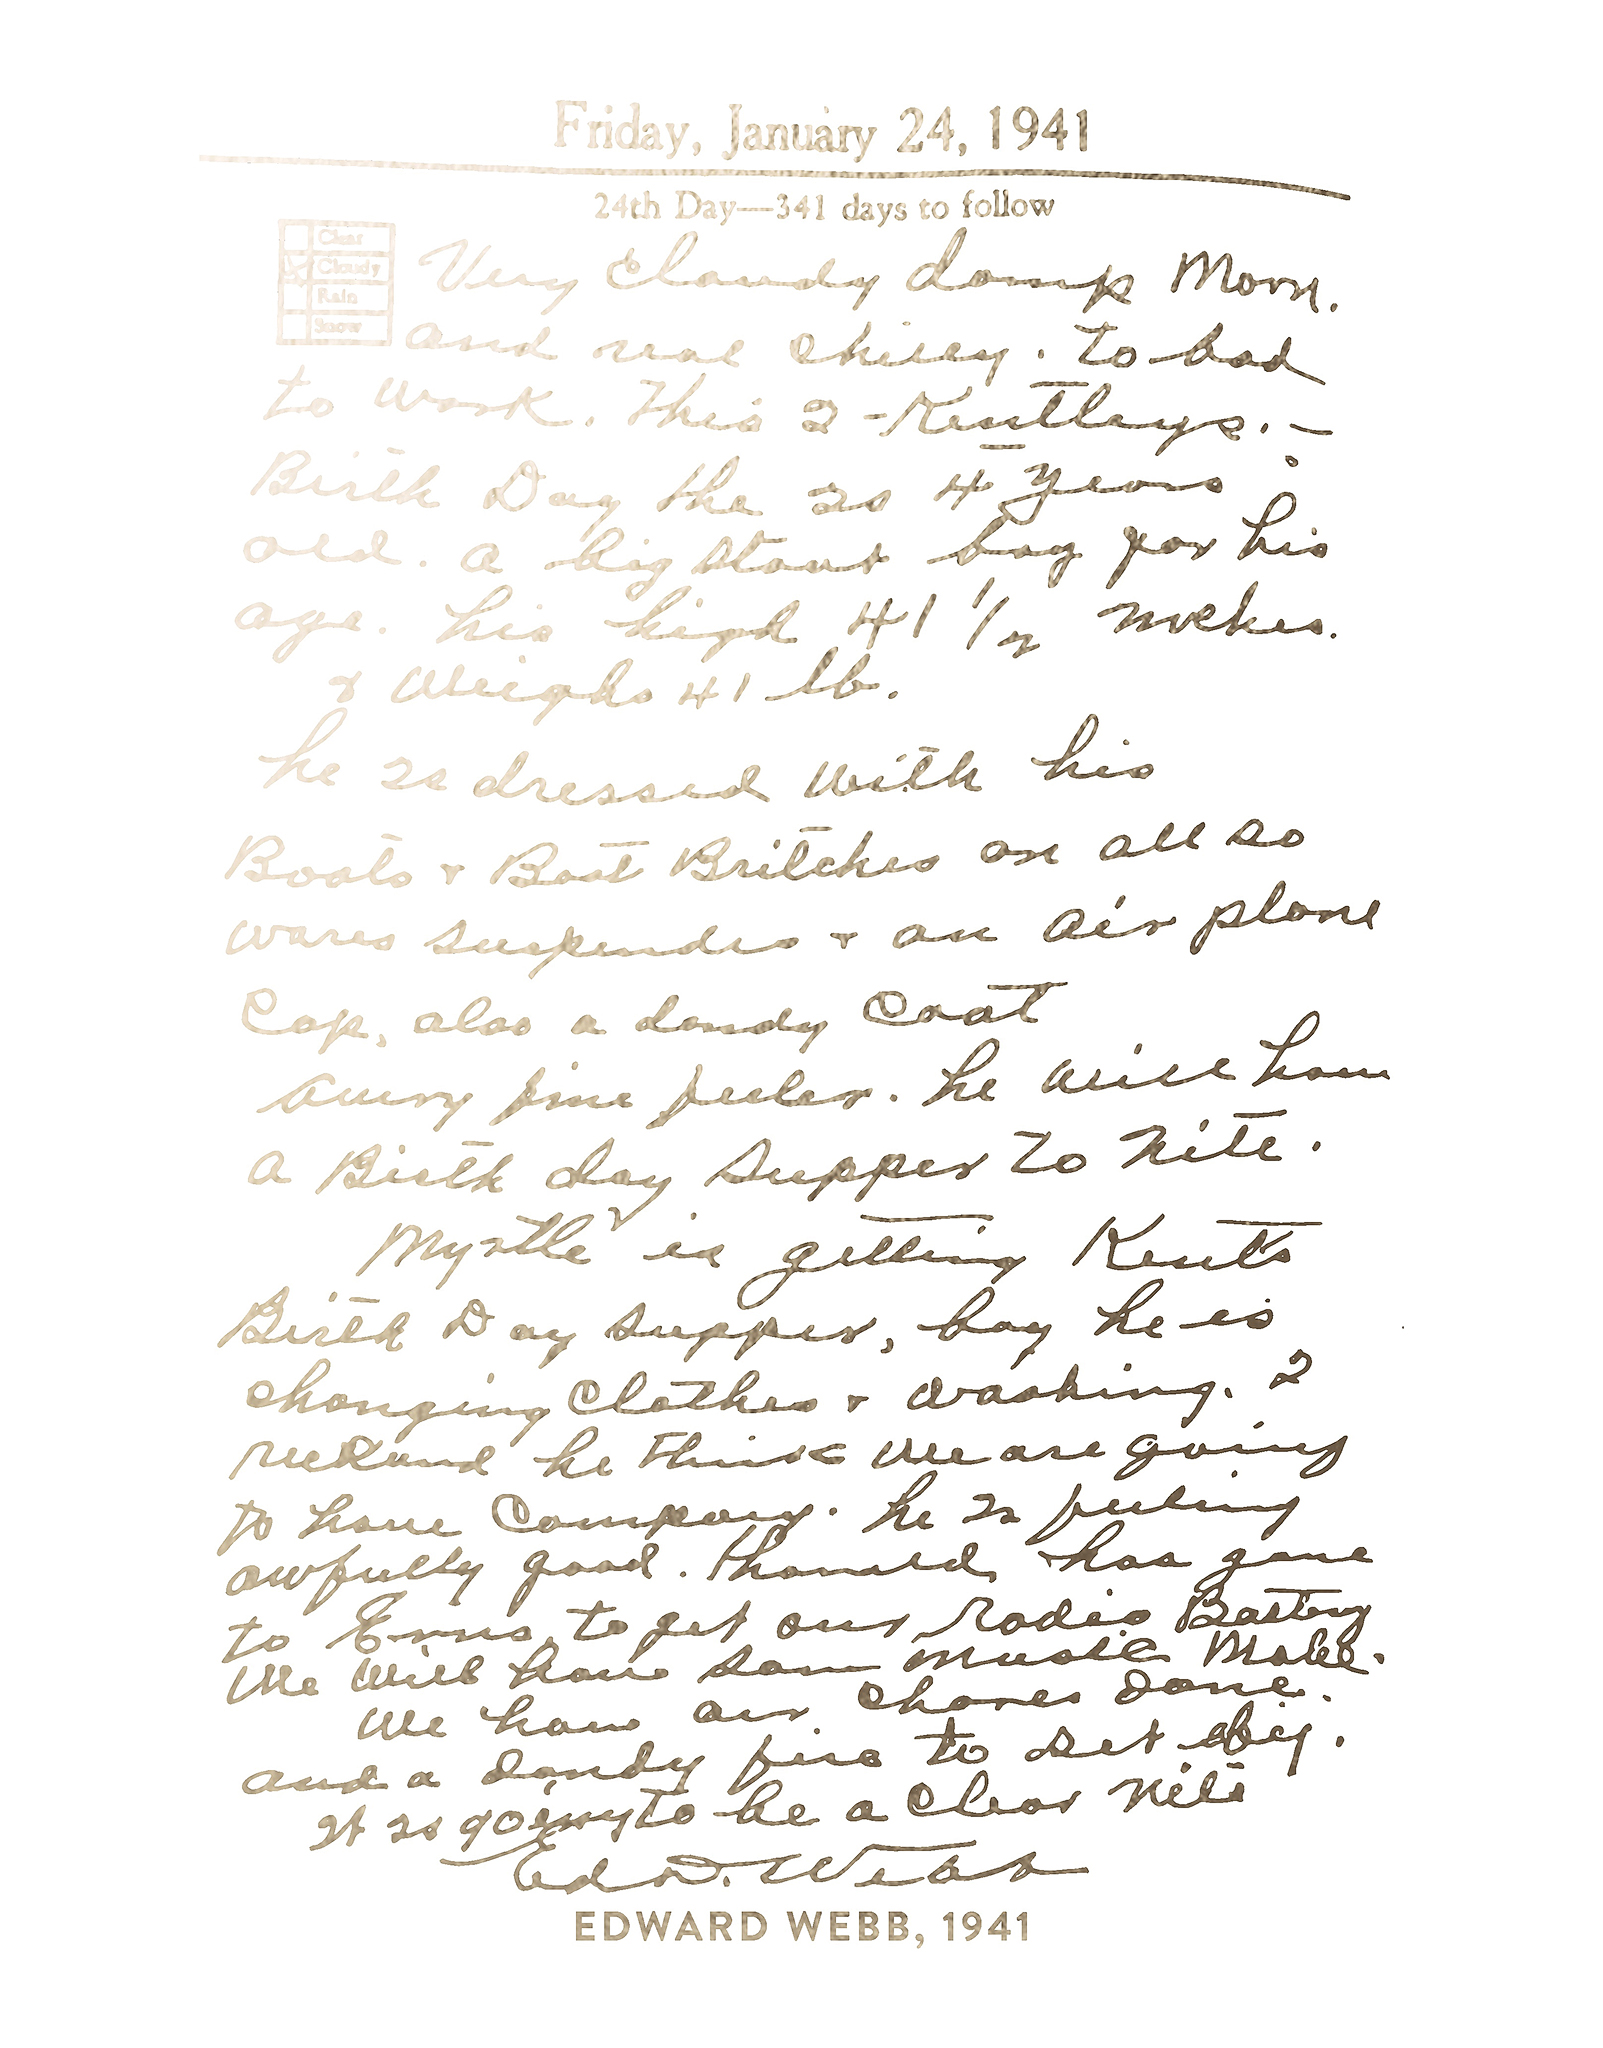 Friday, January 24, 1941
24th Day—341 days to follow
Clear
Cloudy
Rain
Snow
Very Cloudy damp Morn.
and real chilley. to bad
to work. This 2 - Kentleys. –
Birth Day the is 4 years
old. a big stout boy for his
age. his high 41 1/2 inches.
& Weighs 41 lb.
he is dressed with his
Boots & Boot Britches on all so
wares suspenders & an air plane
Cap, also a dandy Coat
a very fine feeler. he will have
a Birth day supper to nite.
Myrtle is getting Kents
Birth Day supper, boy he is
changing Clothes & washing. I
reckand he think we are going
to have Company. he is feeling
awfully good. has gone
to Erns, to get our radio Battery
We will have som music Make.
We have our chores done.
and a dandy fire to set by.
It is going to be a Clear nite
Ed. Webb
EDWARD WEBB, 1941